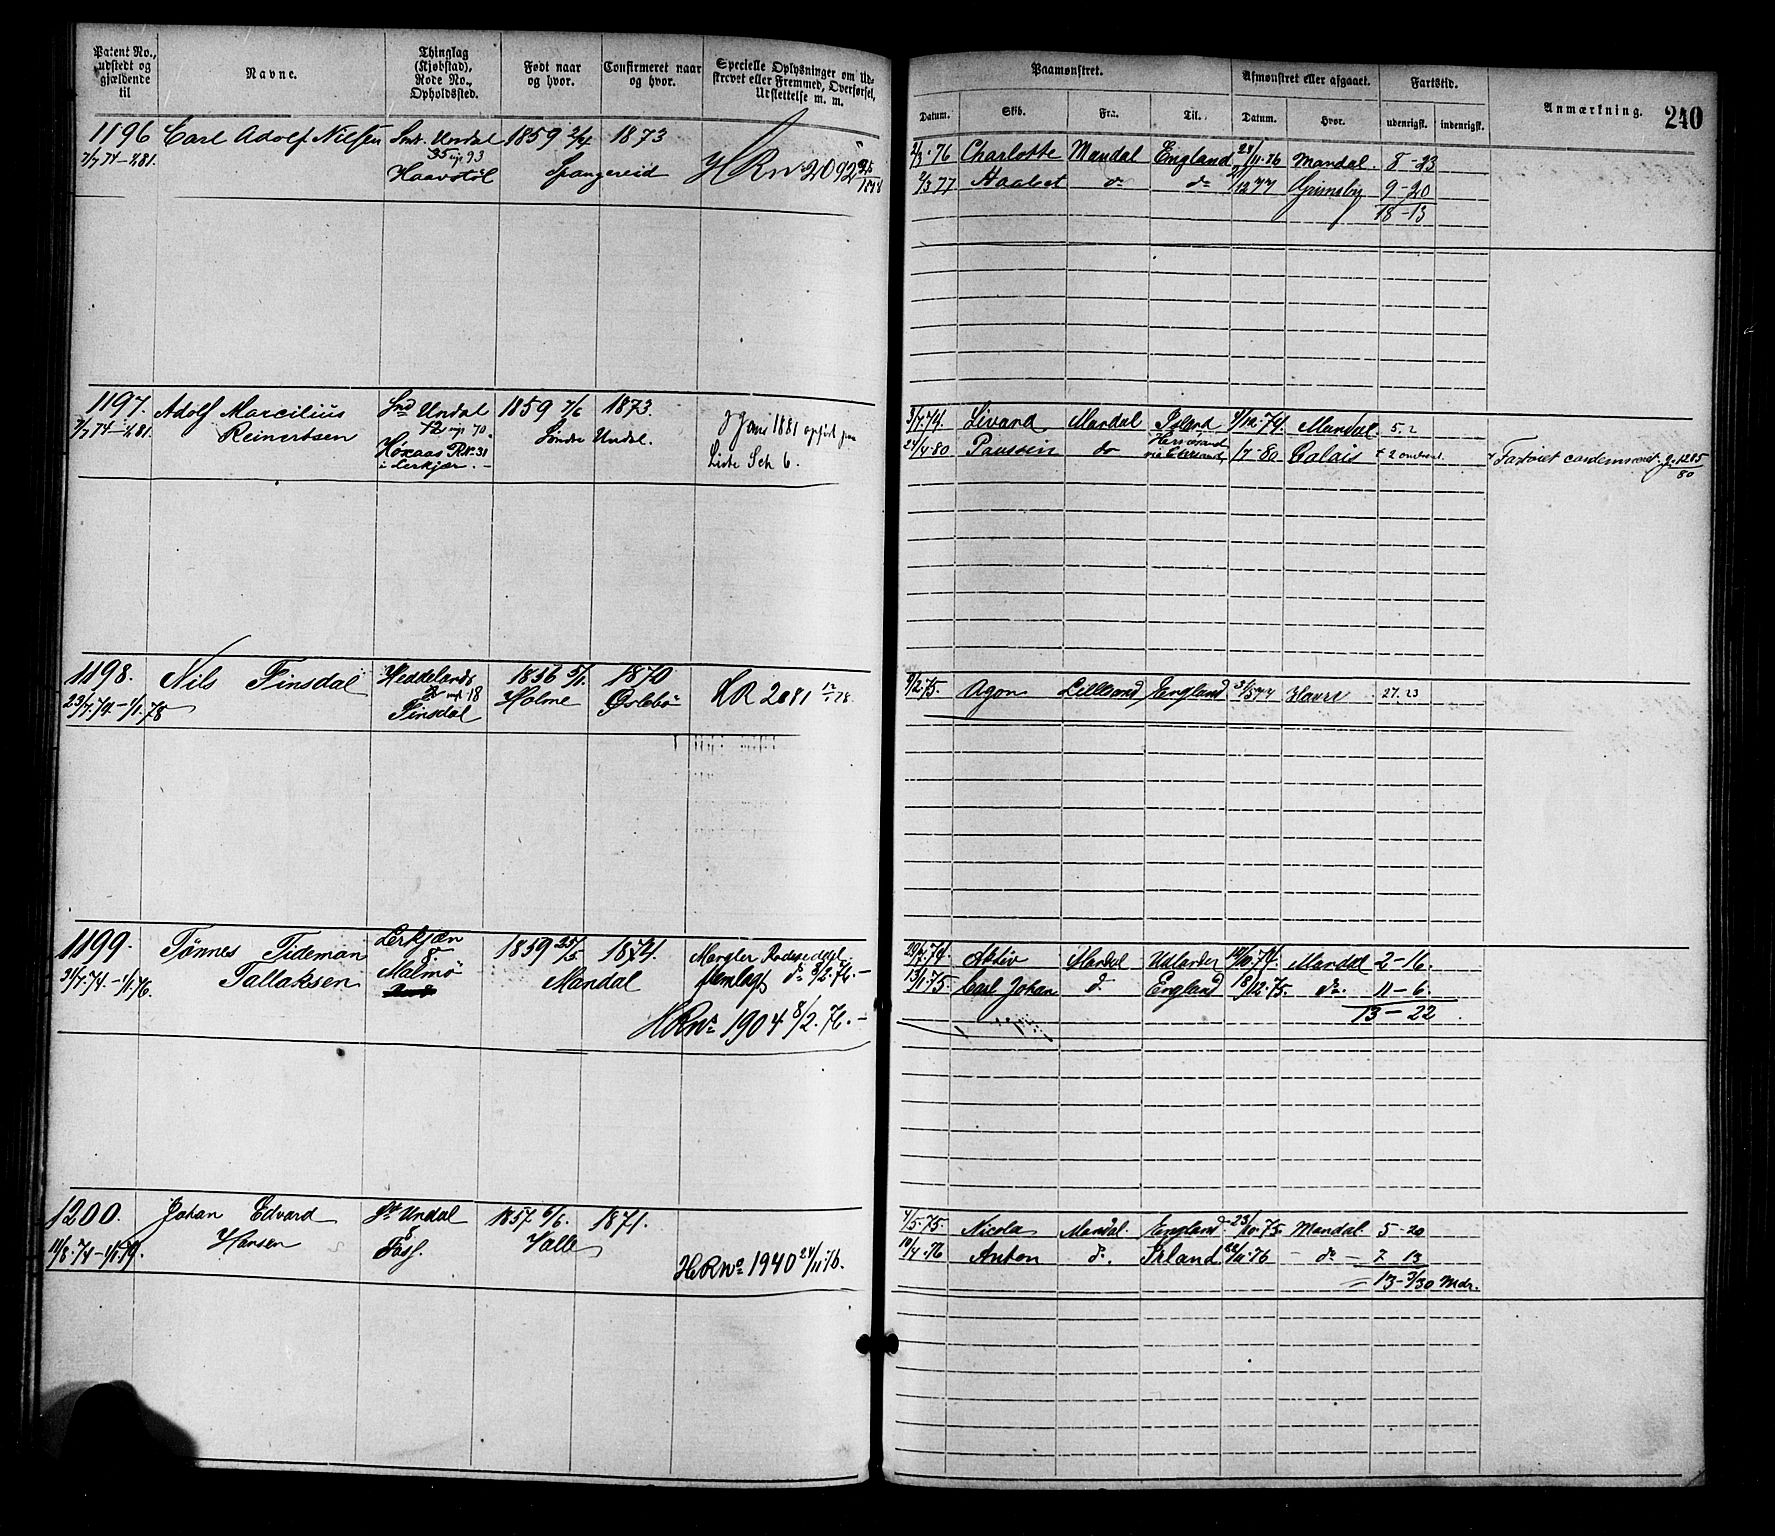 Patent No., udstedt og gjældende til
Navne.
Thinglag (Kjøbstad), Rode No., Opholdssted.
Født naar og hvor.
Confirmeret naar og hvor.
Specielle Oplysninger om Udskrevet eller Fremmed, Overførsel, Udslettelse m. m.
Paamønstret.
Afmønstret eller afgaaet.
Fartstid.
Anmærkning.
240
Datum.
Skib.
Fra.
Til.
Datum.
Hvor.
udenrigsk.
indenrigsk.
1196 Carl Adolf Nielsen Sndr. Undal 1859 2/4 1873
7/7 74 – 1/1 81. 35 93
Haavstøl Spangereid HR No 2092
76 Charlotte Mandal England 28/11-76 Mandal. 8-23
2/3 77 Haabet do do /12 77 Grimsby 9-20
18-13
1197. Adolf Marcilius Snd Undal 1859 7/6 1873.
7/7 74 – 1/1 81. Reinertsen 12 70. Søndre Undal.
Høxaas R No 31
i Lerkjær.
J Janr 1881 opført paa
Liste Sch 6.
3/7. 74. Livard Mandal Island 9/12. 74. Mandal. 5.2
24/4 80 Poussin do 1/7-80 Calais
80
1198. Nils Finsdal Heddelands 1856 5/1. 1870
23/7. 74 – 1/1. 78 18 Holme Øslebø
Finsdal
HR 2081
9/2. 75. Agon Lillesand England 31/5 77 Havre 27. 23
1199. Tønnes Tideman Lerkjær 1859 25/5 1874.
31/7. 74. – 1/1. 76. Tallaksen 8. Malmø Mandal
Mangler Rodeseddel
fremlagt do 8/2. 76. –
HR No 1904 8/2. 76. –
29/7. 74. Aktiv Mandal Udlandet Mandal 2–16.
13/1. 75. Carl Johan do England 18/12. 75. do. 11–6.
13–22
1200. Johan Edvard Sr Undal 1857 6/6. 1871.
Hansen 8 Valle
14/8. 74 – 1/1. 79. Foss.
HR No 1940 24/11. 76.
4/5. 75 Nicola Mandal. England 23/10. 75 Mandal 5-20
10/4. 76 Anton do. Irland 22/11. 76 – do – 7 13
13-3/30 Mdr.